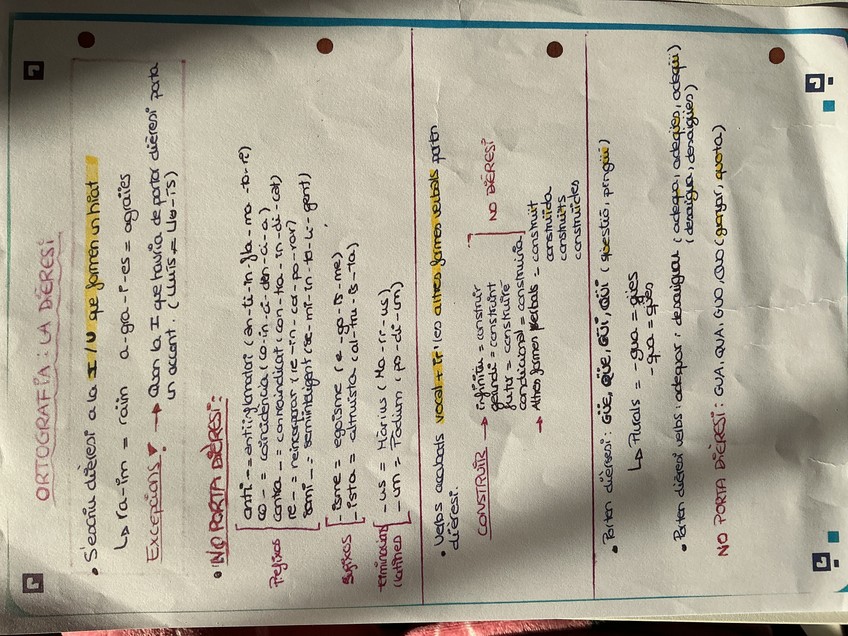 ORTOGRAFIA: LA DIÈRESI
• S'escriu dièresi a la I/U que formen un hiat
↳ ra-im = raïm a-gra-i-es = agraïes
Excepcions! → Quan la I que hauria de portar dièresi porta
un accent. (Lluís = Llu-ís)
• NO PORTA DIÈRESI:
Prefixos
anti- = antiinflamatori (an-ti-in-fla-ma-to-ri)
co- = coincidència (co-in-ci-dèn-ci-a)
contra- = contraindicat (con-tra-in-di-cat)
re- = reincorporar (re-in-cor-po-rar)
semi- = semiintel·ligent (se-mi-in-te-li-gent)
Sufixos
-isme = egoisme (e-go-is-me)
-ista = altruista (al-tru-is-ta)
terminacions
llatines
-us = Màrius (Mà-ri-us)
-um = Pòdium (pò-di-um)
• Verbs acabats vocal + ir i les altres formes verbals porten
dièresi.
CONSTRUIR → infinitiu = construir
gerundi = construint
futur = construiré
condicional = construiria
] NO DIÈRESI
→ Altres formes verbals = construït
construïda
construïts
construïdes
• Porten dièresi: GÜE, QÜE, GÜI, QÜI (qüestió, pingüí)
↳ Plurals = -gua = gües
-qua = qües
• Porten dièresi verbs: adequar, desaiguar (adequa, adeqües, adeqüi)
(desaigua, desaigües)
NO PORTA DIÈRESI: GUA, QUA, GUO, QUO (guanyar, quota)